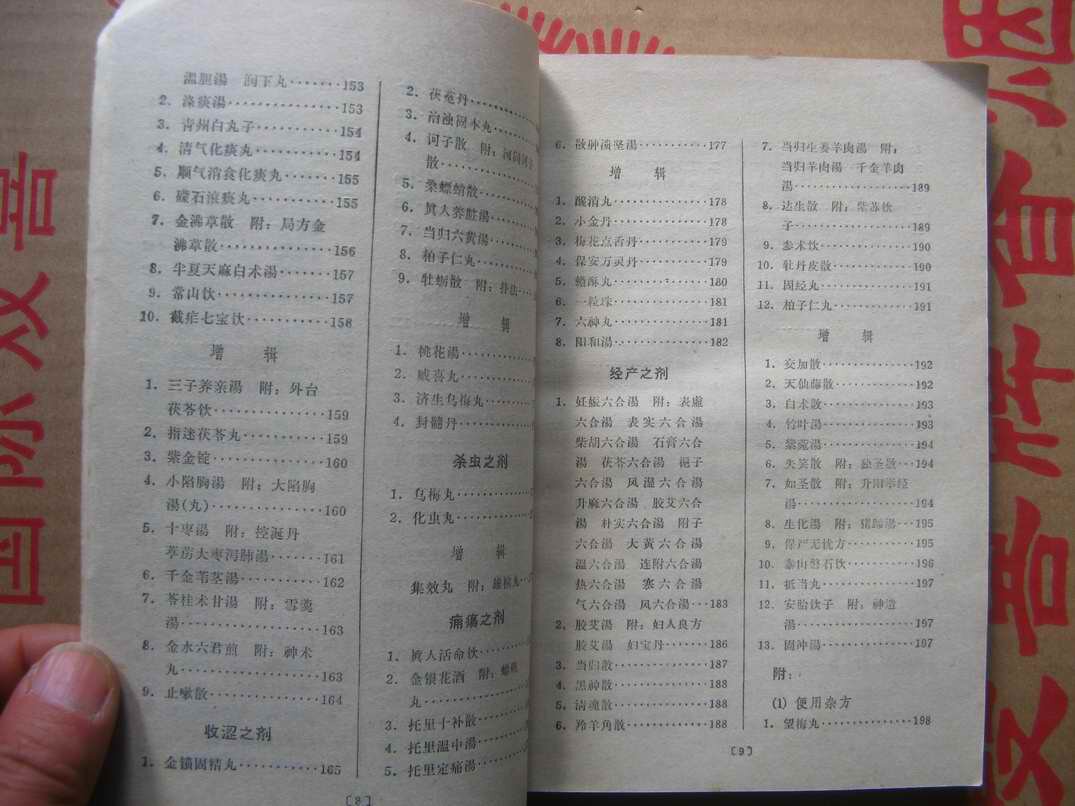 温胆湯　润下丸·······153
2. 涤痰湯·············153
3. 青州白丸子···········154
4. 清气化痰丸··········154
5. 顺气消食化痰丸······155
6. 礞石滚痰丸··········155
7. 金沸草散　附：局方金
沸草散·············156
8. 半夏天麻白术湯·······157
9. 常山饮·············157
10. 截疟七宝饮··········158
增　辑
1. 三子养亲湯　附：外台
茯苓饮·············159
2. 指迷茯苓丸··········159
3. 紫金锭·············160
4. 小陷胸湯　附：大陷胸
湯(丸)·············160
5. 十枣湯　附：控涎丹
葶苈大枣泻肺湯······161
6. 千金苇茎湯··········162
7. 苓桂术甘湯　附：雪羹
湯················163
8. 金水六君煎　附：神术
丸················163
9. 止嗽散·············164
收涩之剂
1. 金鎖固精丸··········165
〔8〕
2. 茯菟丹
3. 治浊固本丸
4. 诃子散　附：河间诃子
散
5. 桑螵蛸散
6. 眞人养脏湯
7. 当归六黄湯
8. 柏子仁丸
9. 牡蛎散　附：扑法
增　辑
1. 桃花湯
2. 威喜丸
3. 济生乌梅丸
4. 封髓丹
杀虫之剂
1. 乌梅丸
2. 化虫丸
增　辑
集效丸　附：雄槟丸
痈瘍之剂
1. 眞人活命饮
2. 金银花酒　附：蜡矾
丸
3. 托里十补散
4. 托里温中湯
5. 托里定痛湯
6. 散肿溃坚湯·········177
增　辑
1. 醒消丸············178
2. 小金丹············178
3. 梅花点舌丹·········179
4. 保安万灵丹·········179
5. 蟾酥丸············180
6. 一粒珠············181
7. 六神丸············181
8. 阳和湯············182
经产之剂
1. 妊娠六合湯　附：表虚
六合湯　表实六合湯
柴胡六合湯　石膏六合
湯　茯苓六合湯　梔子
六合湯　风湿六合湯
升麻六合湯　胶艾六合
湯　朴实六合湯　附子
六合湯　大黄六合湯
温六合湯　连附六合湯
热六合湯　寒六合湯
气六合湯　风六合湯···183
2. 胶艾湯　附：妇人良方
胶艾湯　妇宝丹······186
3. 当归散············187
4. 黑神散············188
5. 清魂散············188
6. 羚羊角散··········188
7. 当归生姜羊肉湯　附：
当归羊肉湯　千金羊肉
湯···············189
8. 达生散　附：紫苏饮
子···············189
9. 参术饮············190
10. 牡丹皮散··········190
11. 固经丸············191
12. 柏子仁丸··········191
增　辑
1. 交加散············192
2. 天仙藤散··········192
3. 白术散············193
4. 竹叶湯············193
5. 紫菀湯············194
6. 失笑散　附：独圣散···194
7. 如圣散　附：升阳举经
湯···············194
8. 生化湯　附：猪蹄湯···195
9. 保产无忧方·········195
10. 泰山磐石饮·········196
11. 抵当丸············197
12. 安胎饮子　附：神造
湯···············197
13. 固冲湯············197
附：
(1) 便用杂方
1. 望梅丸············198
〔9〕
国际双喜